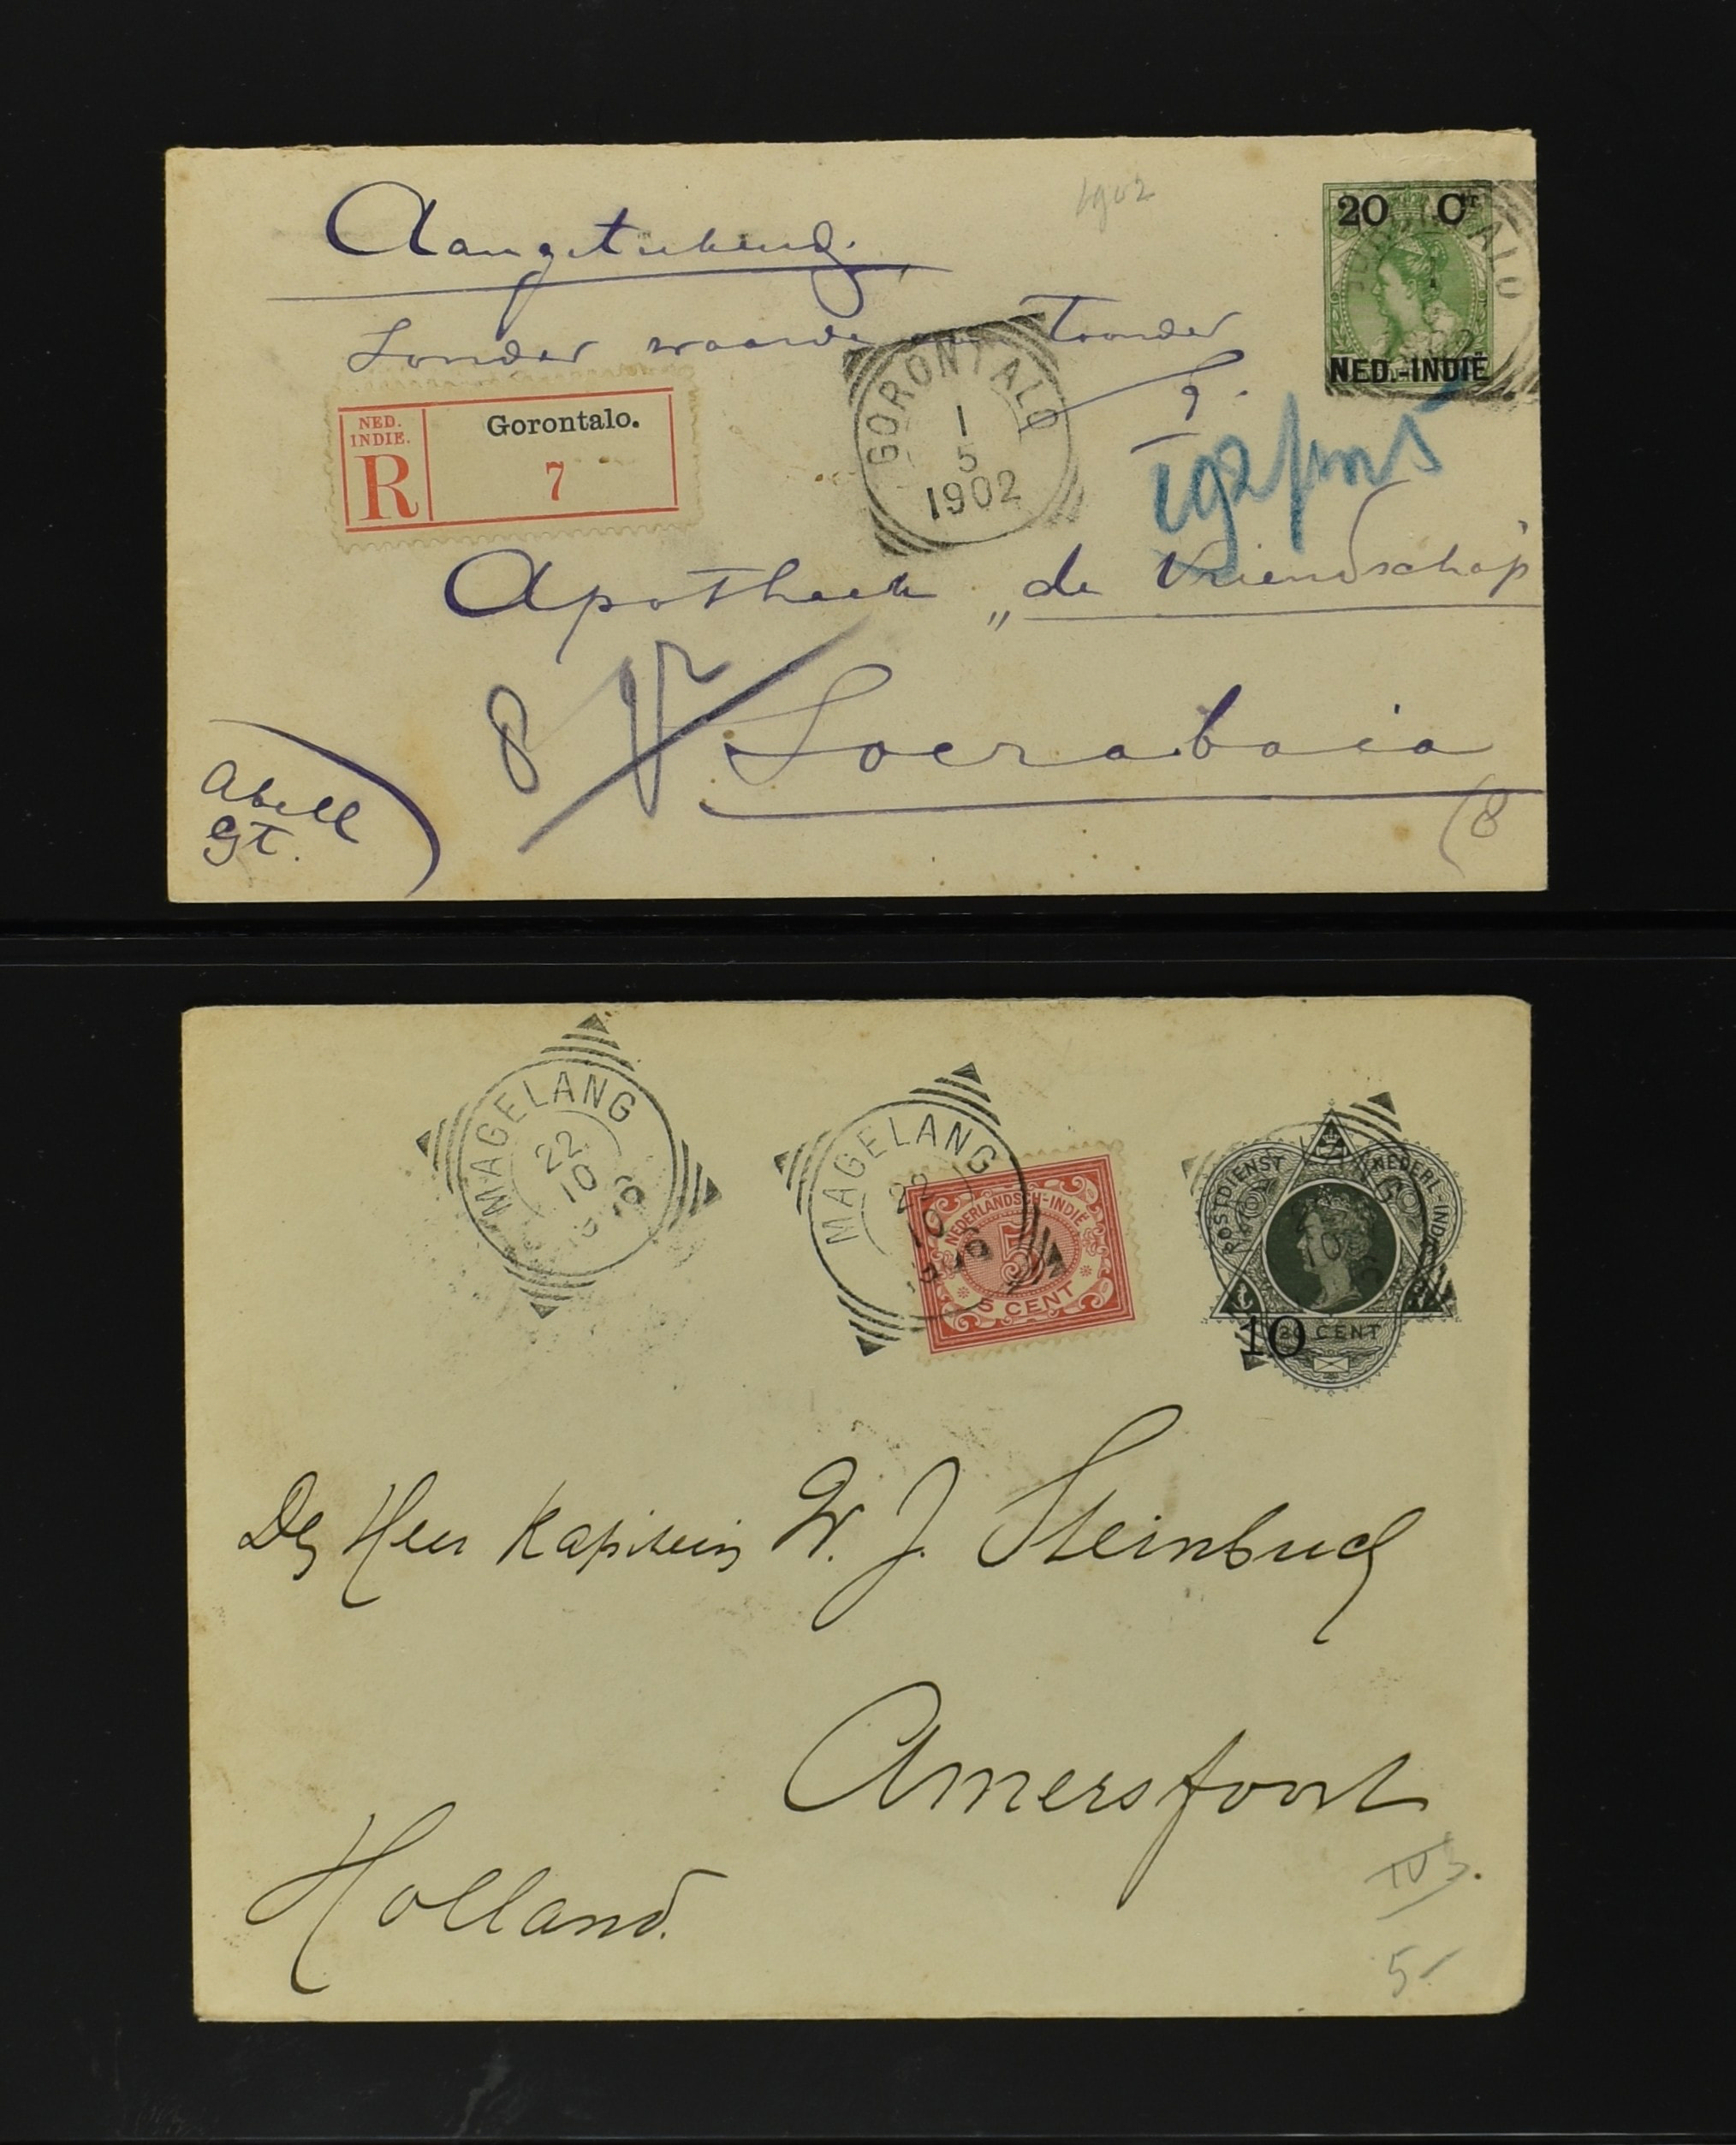 1902
Aangetekend.
Zonder waarde aan Toonder
20 Ct
NED.-INDIË
GORONTALO
NED. INDIE.
R
Gorontalo.
7
GORONTALO
1
5
1902
Apotheek „de Vriendschap
8
Soerabaia
Abell
gt.
8
MAGELANG
22
10
MAGELANG
22
10
NEDERLANDSCH-INDIË
5
5 CENT
POSTDIENST NEDERL-INDIË
10
CENT
Den Heer Kapitein W. J. Steinbuch
Amersfoort
Holland.
5-